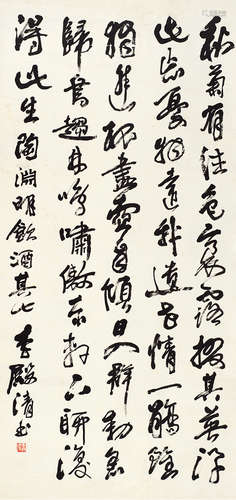 秋菊有佳色裛露掇其英泛
此忘憂物遠我遺世情一觴雖
獨進杯盡壺自傾日入群動息
歸鳥趨林鳴嘯傲東軒下聊復
得此生陶淵明飲酒其七李殿清书